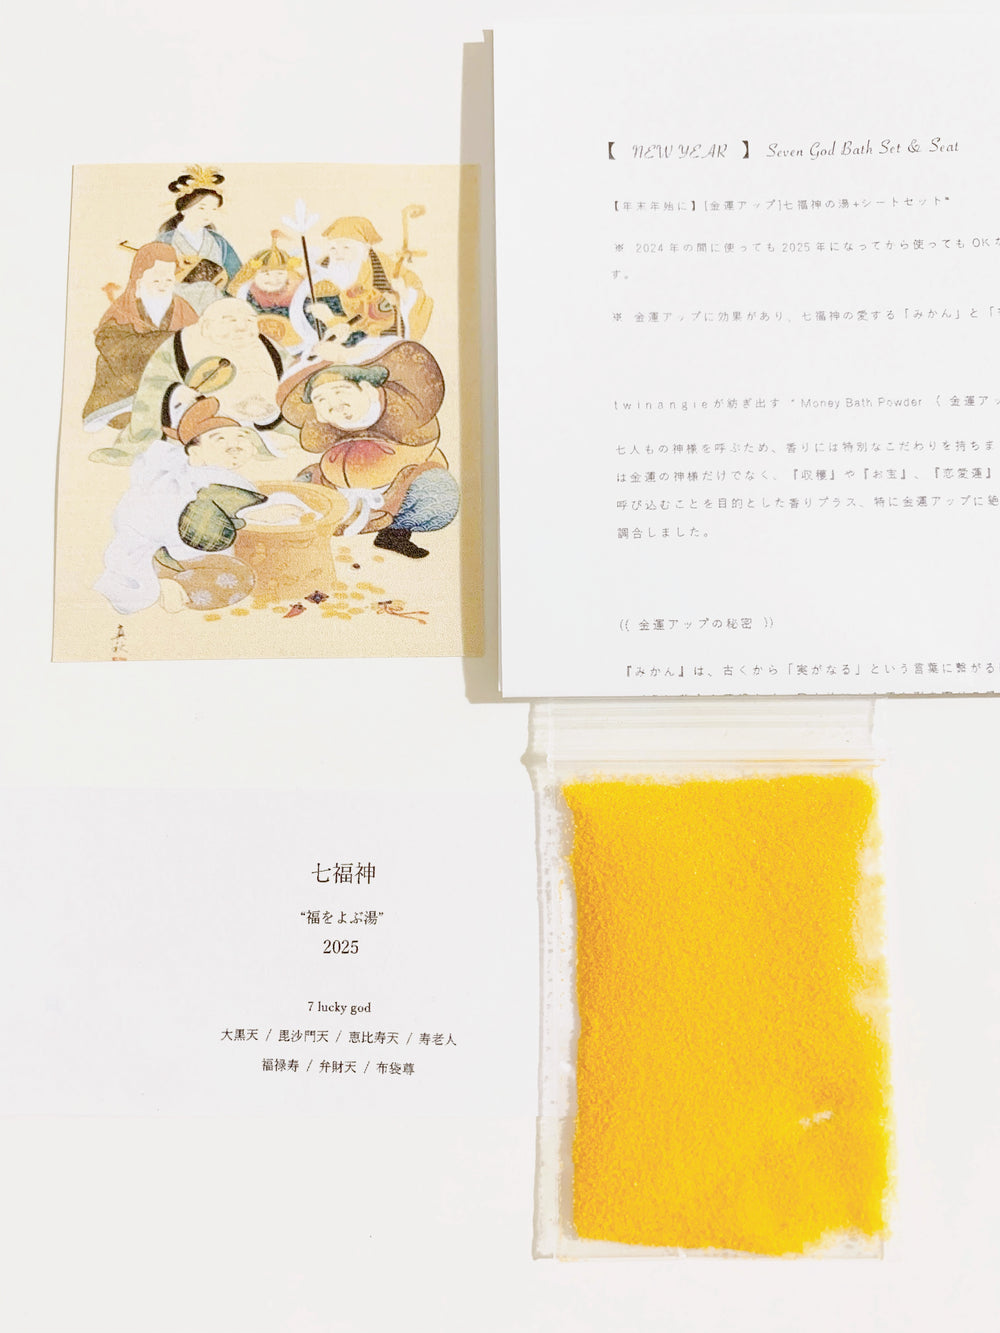 【 NEW YEAR 】 Seven God Bath Set & Seat
【年末年始に】[金運アップ]七福神の湯+シートセット*
※ 2024年の間に使っても2025年になってから使ってもOK
す。
※ 金運アップに効果があり、七福神の愛する「みかん」と「
twinangieが紡ぎ出す * Money Bath Powder ( 金運ア
七人もの神様を呼ぶため、香りには特別なこだわりを持ちま
は金運の神様だけでなく、『収穫』や『お宝』、『恋愛運』
呼び込むことを目的とした香りプラス、特に金運アップに
調合しました。
(( 金運アップの秘密 ))
『みかん』は、古くから「実がなる」という言葉に繋がる
七福神
“福をよぶ湯”
2025
7 lucky god
大黒天 / 毘沙門天 / 恵比寿天 / 寿老人
福禄寿 / 弁財天 / 布袋尊